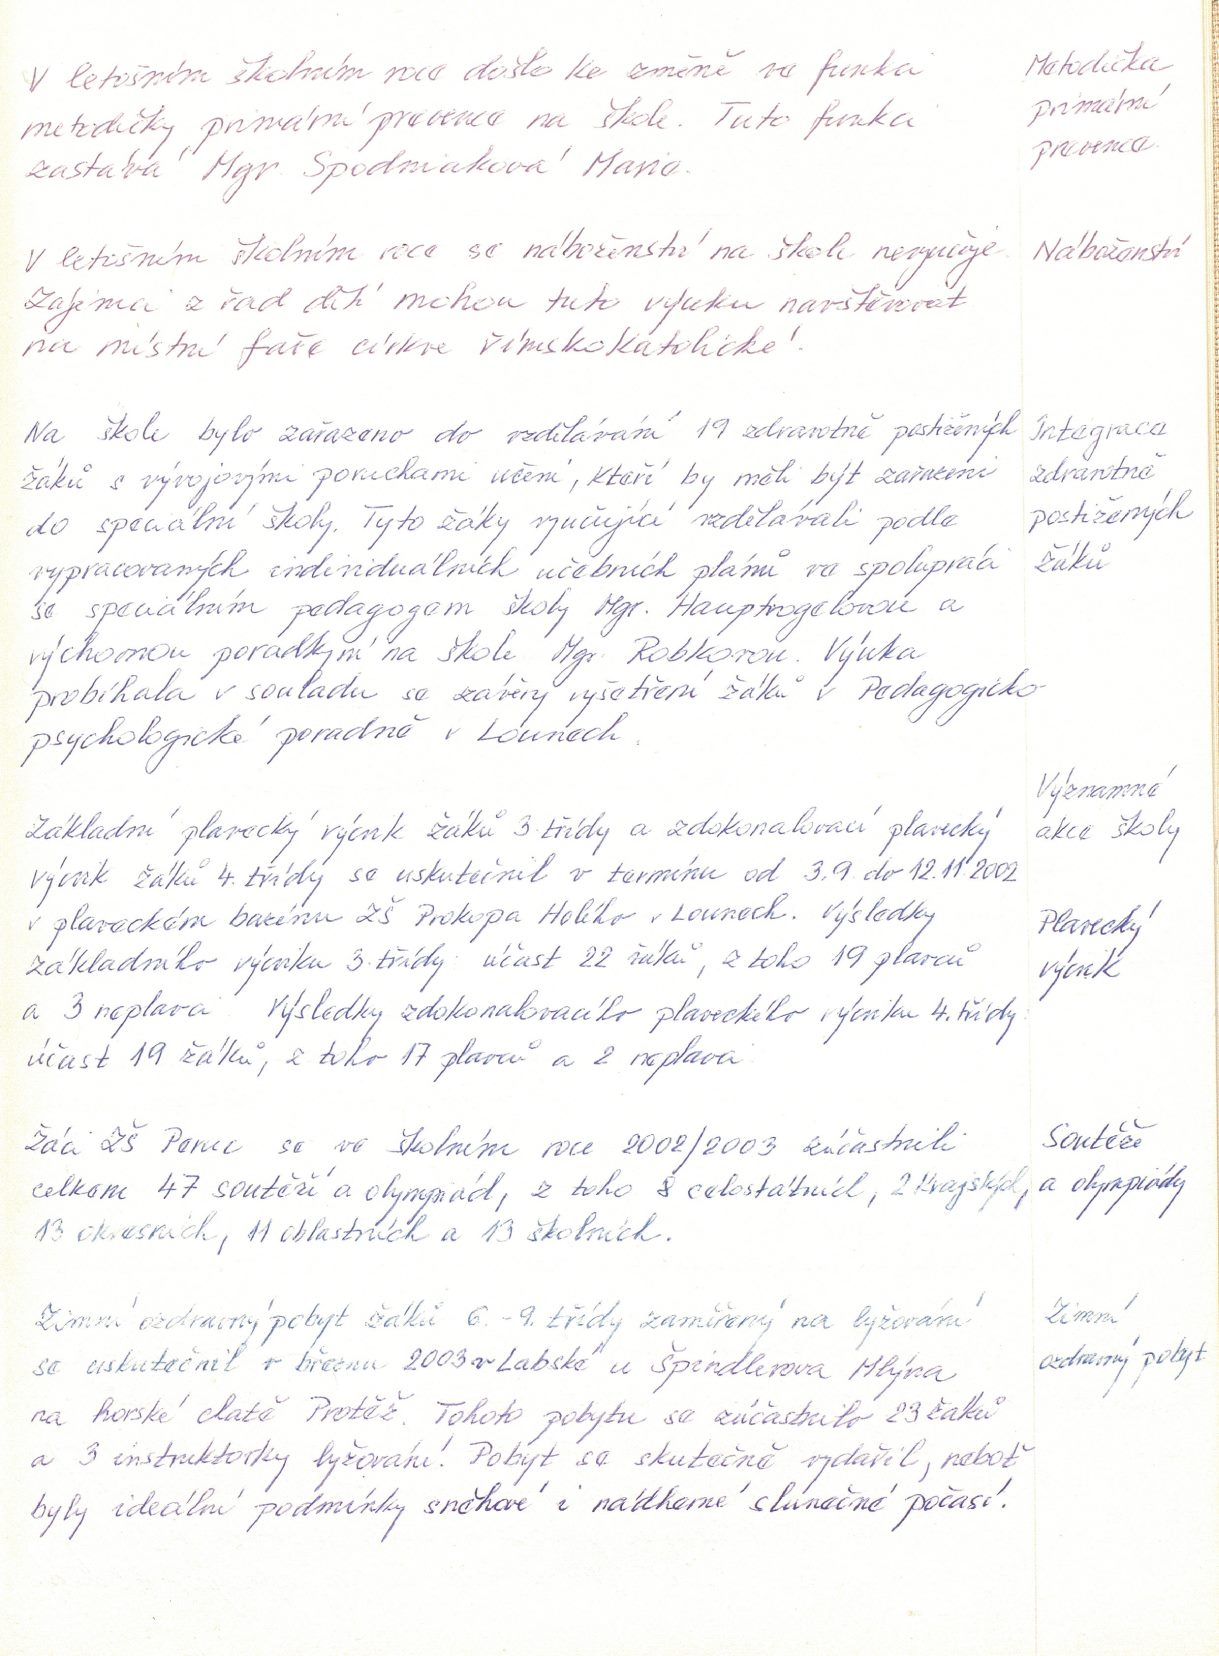 V letošním školním roce došlo ke změně ve funkci
metodičky primární prevence na škole. Tuto funkci
zastává Mgr. Spodniaková Marie.
Metodička
primární
prevence.
V letošním školním roce se náboženství na škole nevyučuje.
Zájemci z řad dětí mohou tuto výuku navštěvovat
na místní faře církve římskokatolické.
Náboženství
Na škole bylo zařazeno do vzdělávání 19 zdravotně postižených
žáků s vývojovými poruchami učení, kteří by měli být zařazeni
do speciální školy. Tyto žáky vyučující vzdělávali podle
vypracovaných individuálních učebních plánů ve spolupráci
se speciálním pedagogem školy Mgr. Hauptvogelovou a
výchovnou poradkyní na škole Mgr. Robkovou. Výuka
probíhala v souladu se závěry vyšetření žáků v Pedagogicko-
psychologické poradně v Lounech.
Integrace
zdravotně
postižených
žáků
Významné
akce školy
Základní plavecký výcvik žáků 3. třídy a zdokonalovací plavecký
výcvik žáků 4. třídy se uskutečnil v termínu od 3.9. do 12.11.2002
v plaveckém bazénu ZŠ Prokopa Holého v Lounech. Výsledky
základního výcviku 3. třídy: účast 22 žáků, z toho 19 plavců
a 3 neplavci. Výsledky zdokonalovacího plaveckého výcviku 4. třídy:
účast 19 žáků, z toho 17 plavců a 2 neplavci.
Plavecký
výcvik
Žáci ZŠ Peruc se ve školním roce 2002/2003 zúčastnili
celkem 47 soutěží a olympiád, z toho 8 celostátních, 2 krajských,
13 okresních, 11 oblastních a 13 školních.
Soutěže
a olympiády
Zimní ozdravný pobyt žáků 6. - 9. třídy zaměřený na lyžování
se uskutečnil v březnu 2003 v Labské u Špindlerova Mlýna
na horské chatě Protěž. Tohoto pobytu se zúčastnilo 23 žáků
a 3 instruktorky lyžování. Pobyt se skutečně vydařil, neboť
byly ideální podmínky sněhové i nádherné slunečné počasí.
Zimní
ozdravný pobyt